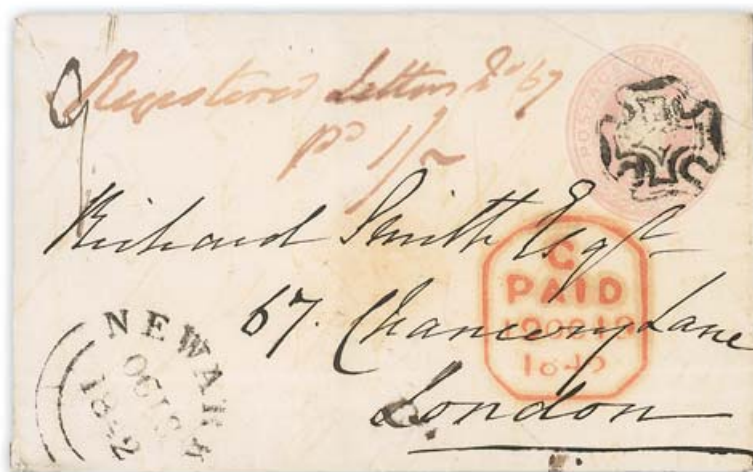 Registered Letter No 67
pd 1/-
POSTAGE ONE
Richard Smith Esqr
67. Chancery Lane
London
C
PAID
1842
NEWARK
OC
1842